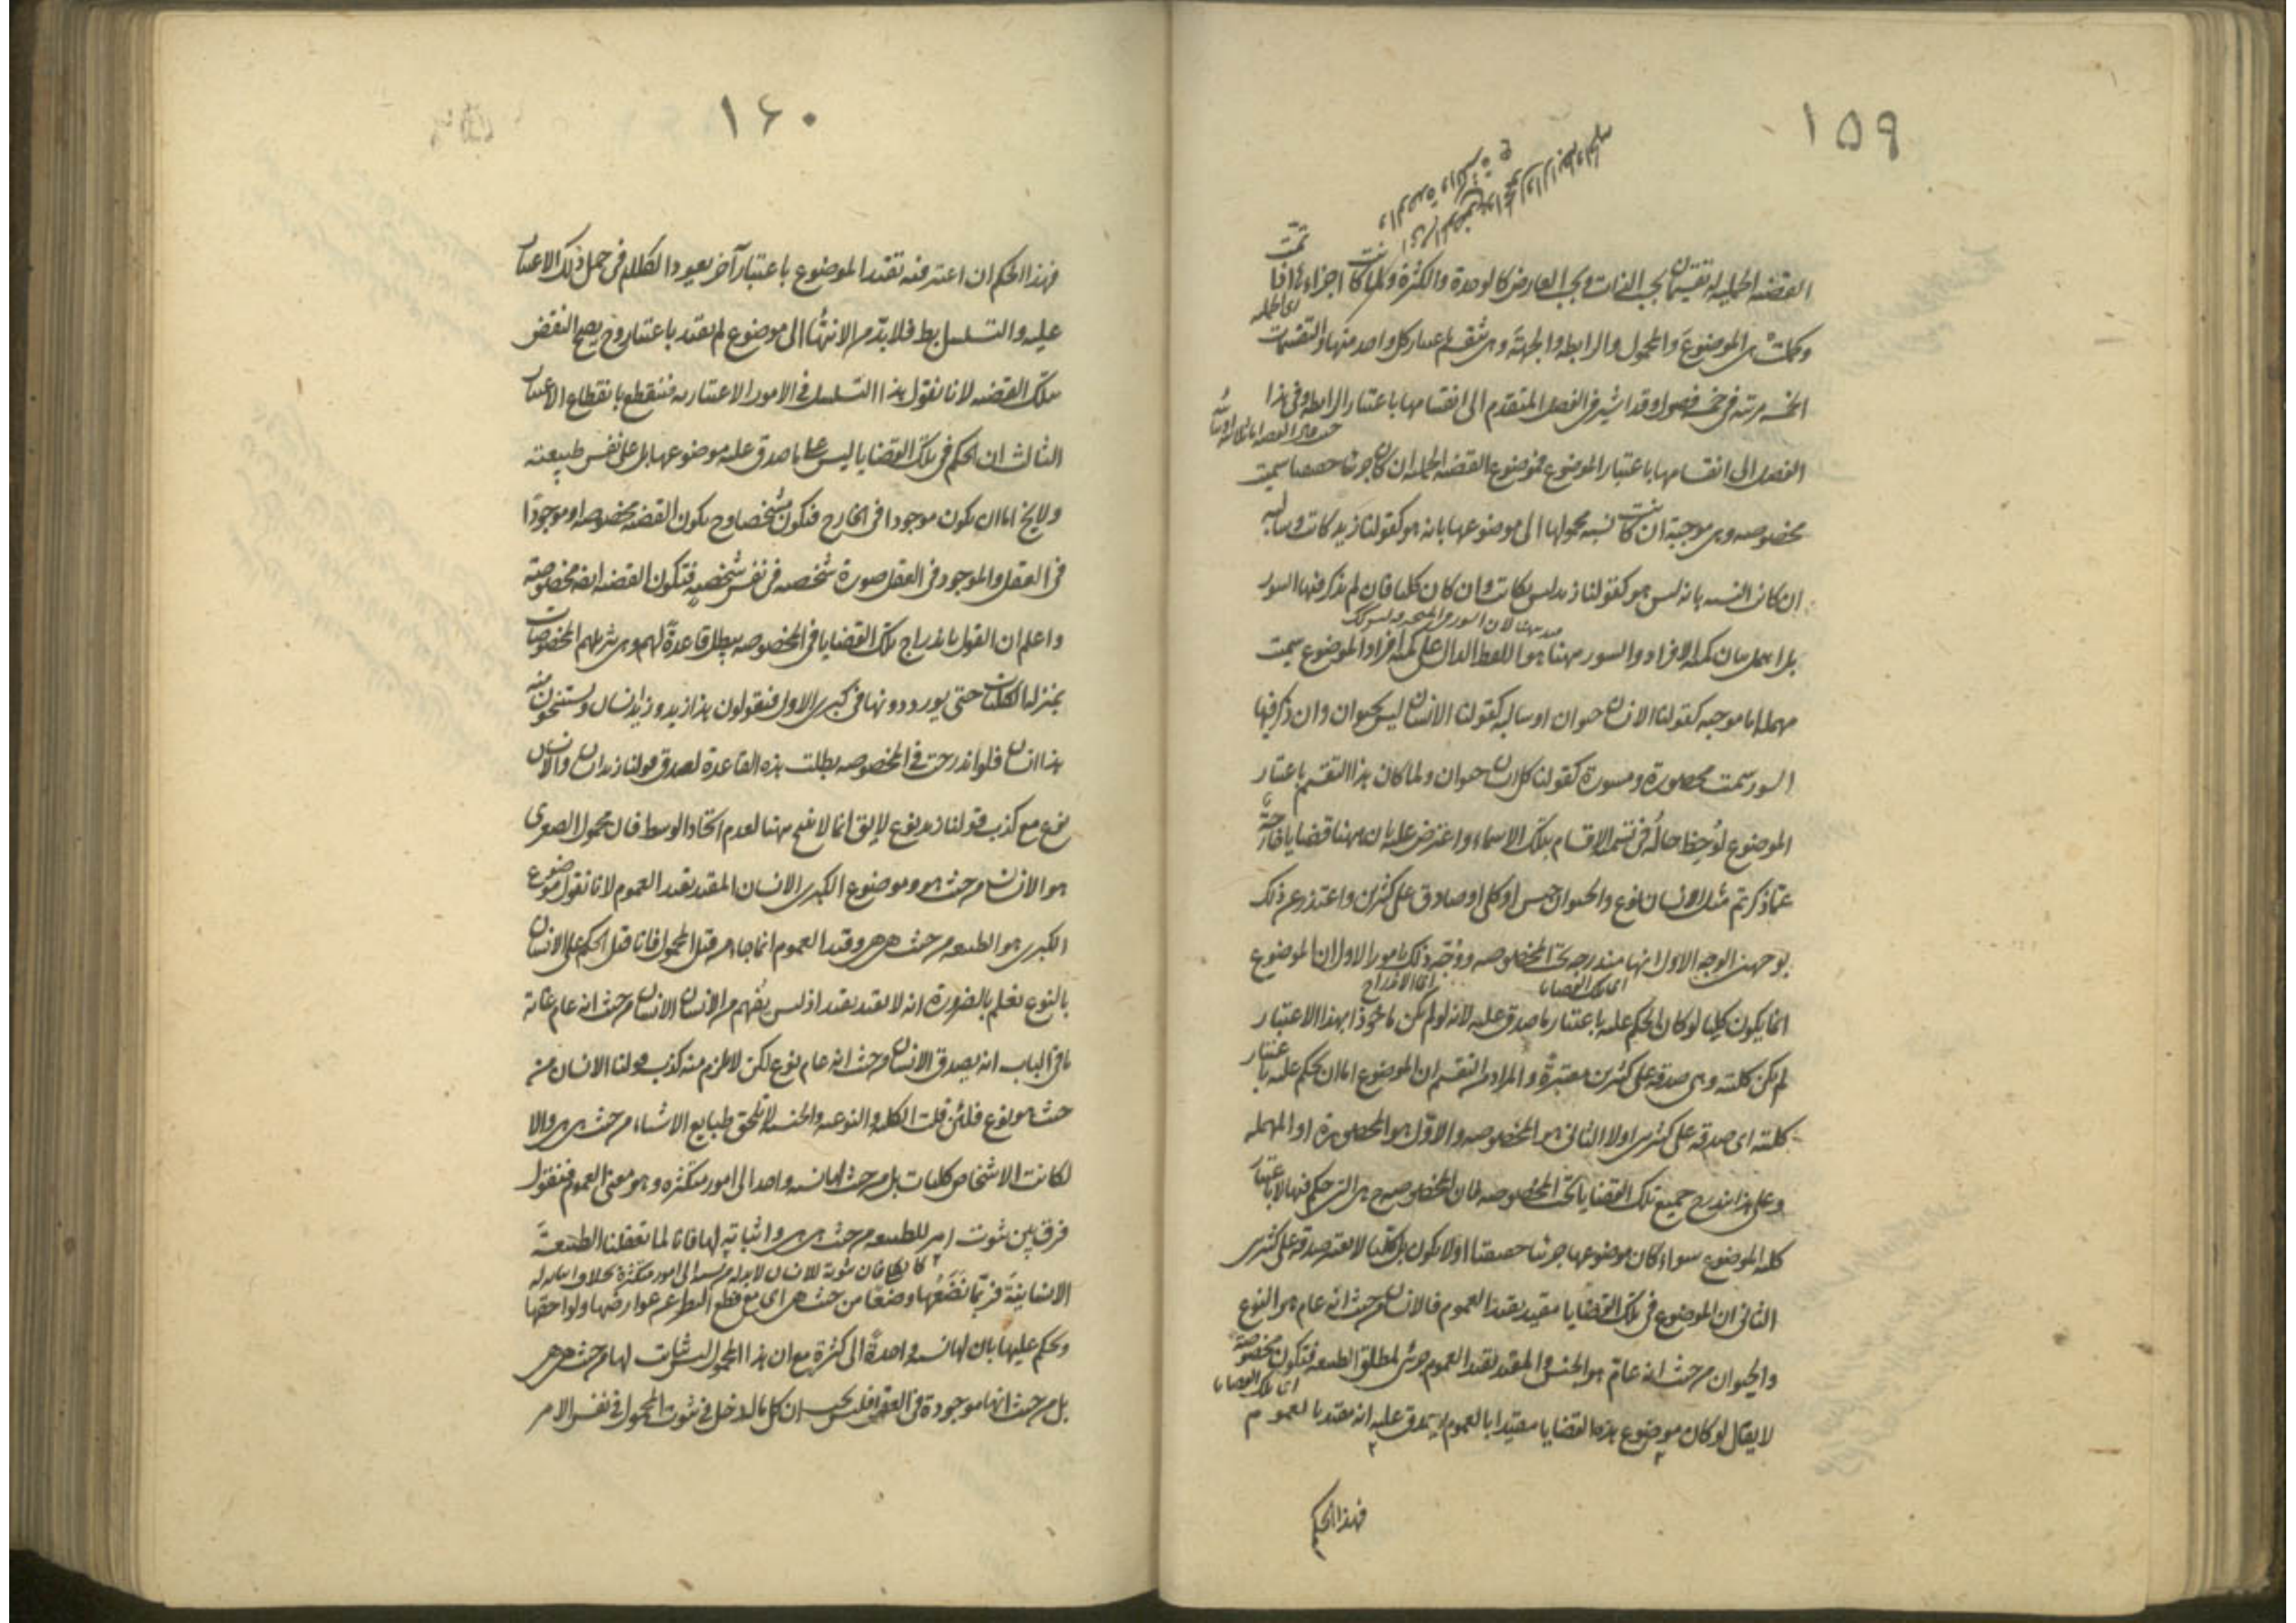 ١٥٩
القضية الحملية لها تقسيمان بحسب الذات وبحسب العارض كالوحدة والكثرة وكلما كانت اجزاءها اذا تمت
وكملت هي الموضوع والمحمول والرابطة والجهة وهي تنقسم باعتبار كل واحد منها والتقسيمات
الخمسة مرتبة في خمسة فصول وقد اشير في الفصل المتقدم الى انقسامها باعتبار الرابطة وفي هذا
الفصل الى انقسامها باعتبار الموضوع فموضوع القضية الحملية ان كان جزئيا حقيقيا سميت
مخصوصة وهي موجبة ان كانت نسبة محمولها الى موضوعها بانه هو كقولنا زيد كاتب وسالبة
ان كانت النسبة بانه ليس هو كقولنا زيد ليس بكاتب وان كان كليا فان لم يذكر فيها السور
بل اهمل بيان كمية الافراد والسور ههنا هو اللفظ الدال على كمية افراد الموضوع سميت
مهملة اما موجبة كقولنا الانسان حيوان او سالبة كقولنا الانسان ليس بحيوان وان ذكر فيها
السور سميت محصورة ومسورة كقولنا كل انسان حيوان ولما كان هذا التقسيم باعتبار
الموضوع لوحظ حاله في تسمية الاقسام بتلك الاسماء واعترض عليه بان ههنا قضايا خارجة
عما ذكرتم مثل الانسان نوع والحيوان جنس او كلي او صادق على كثيرين واعتذر عن ذلك
بوجهين الوجه الاول انها مندرجة تحت المخصوصة ووجه ذلك امور الاول ان الموضوع
اي تلك القضايا
اي الاندراج
انما يكون كليا لو كان الحكم عليه باعتبار ما صدق عليه لانه لو لم يكن ماخوذا بهذا الاعتبار
لم يكن كليته وهي صدقه على كثيرين معتبرة والمراد من التقسيم ان الموضوع اما ان يحكم عليه باعتبار
كليته اي صدقه على كثيرين او لا الثاني هو المخصوصة والاول هو المحصورة او المهملة
وعلى هذا يندرج جميع تلك القضايا تحت المخصوصة فان المخصوصة ح هي التي حكم فيها لا باعتبار
كلية الموضوع سواء كان موضوعها جزئيا حقيقيا او لا يكون بل كليا لا يعتبر صدقه على كثيرين
الثاني ان الموضوع في تلك القضايا مقيد بقيد العموم فالانسان من حيث انه عام هو النوع
والحيوان من حيث انه عام هو الجنس والمقيد بقيد العموم جزئي لمطلق الطبيعة فتكون مخصوصة
اي تلك القضايا
لا يقال لو كان موضوع هذه القضايا مقيدا بالعموم لصدق عليه انه مقيد بالعموم
فهذا الحكم
١٦٠
فهذا الحكم ان اعتبر فيه تقيد الموضوع باعتبار آخر يعود الكلام في حمل ذلك الاعتبار
عليه والتسلسل بط فلا بد من الانتهاء الى موضوع لم يقيد باعتبار وح يصح النقض
بتلك القضية لانا نقول هذا التسلسل في الامور الاعتبارية فينقطع بانقطاع الاعتبار
الثالث ان الحكم في تلك القضايا ليس على ما صدق عليه موضوعها بل على نفس طبيعته
ولا يخ اما ان يكون موجودا في الخارج فتكون شخصا وح يكون القضية مخصوصة او موجودا
في العقل والموجود في العقل صورة شخصية في نفس شخصية فتكون القضية ايضه مخصوصة
واعلم ان القول باندراج تلك القضايا في المخصوصة يبطل قاعدة لهم وهي تنزيلهم المخصوصات
بمنزلة الكليات حتى يوردونها في كبرى الاول فيقولون هذا زيد وزيد انسان ويستنتجون منه
هذا انسان فلو اندرجت في المخصوصة بطلت هذه القاعدة لصدق قولنا زيد انسان والانسان
نوع مع كذب قولنا زيد نوع لا يق انما لا ينتج ههنا لعدم اتحاد الوسط فان محمول الصغرى
هو الانسان من حيث هو وموضوع الكبرى الانسان المقيد بقيد العموم لانا نقول موضوع
الكبرى هو الطبيعة من حيث هي هي وقيد العموم انما جاء من قبل المحمول فانا قبل الحكم على الانسان
بالنوع نعلم بالضرورة انه لا يقيد بقيد اذ ليس يفهم من الانسان الانسان من حيث انه عام غاية
ما في الباب انه يصدق الانسان من حيث انه عام نوع لكن لا يلزم منه كذب قولنا الانسان من
حيث هو نوع فلئن قلت الكلية والنوعية والجنسية لا تلحق طبايع الاشياء من حيث هي هي والا
لكانت الاشخاص كليات بل من حيث لها نسبة واحدة الى امور متكثرة وهو معنى العموم فنقول
فرق بين ثبوت امر للطبيعة من حيث هي هي واثباته لها فانا لما تعقلنا الطبيعة
الانسانية فربما نضعها وضعا من حيث هي اي مع قطع النظر عن عوارضها ولواحقها
ونحكم عليها بان لها نسبة واحدة الى كثرة مع ان هذا المحمول ليس بثابت لها من حيث هي هي
بل من حيث انها موجودة في العقل فليس يجب ان كل ما له دخل في ثبوت المحمول في نفس الامر